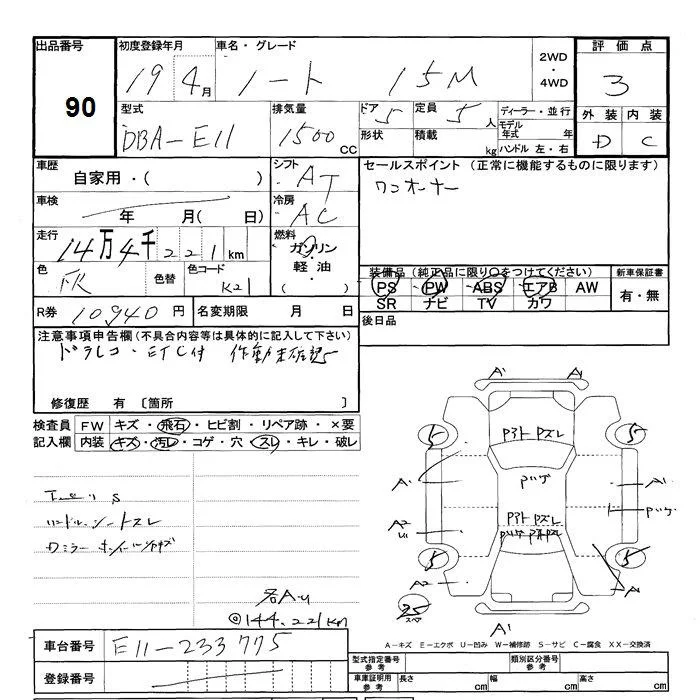 出品番号 初度登録年月 車名・グレード 2WD・4WD 評価点
90 19 4月 ノート 15M 3
型式 排気量 ドア 5 定員 5人 ディーラー・並行 外装 内装
DBA-E11 1500CC 形状 積載 kg モデル年式 年 D C
ハンドル 左・右
車歴 自家用・( ) シフト AT セールスポイント (正常に機能するものに限ります)
車検 年 月( 日) 冷房 AC ワンオーナー
走行 14万4千221km 燃料 ガソリン・軽油・
色 色替 色コード K21 装備品 (純正品に限り○をつけてください) 新車保証書
PS PW ABS エアB AW 有・無
SR ナビ TV カワ
R券 10940円 名変期限 月 日 後日品
注意事項申告欄(不具合内容等は具体的に記入して下さい)
ドラレコ・ETC付 作動未確認
修復歴 有 〔箇所 〕
検査員 FW キズ・飛石・ヒビ割・リペア跡・×要
記入欄 内装 キズ・汚レ・コゲ・穴・スレ・キレ・破レ
ハンドル・シートスレ
A1 A1
5 5
A1 A1
A2
A2
5 5
25
スペア
A1
◎144.221km
A-キズ E-エクボ U-凹み W-補修跡 S-サビ C-腐食 XX-交換済
車台番号 E11-233775
登録番号
型式指定番号 参考 類別区分番号 参考
車庫証明用 参考 長さ cm 幅 cm 高さ cm